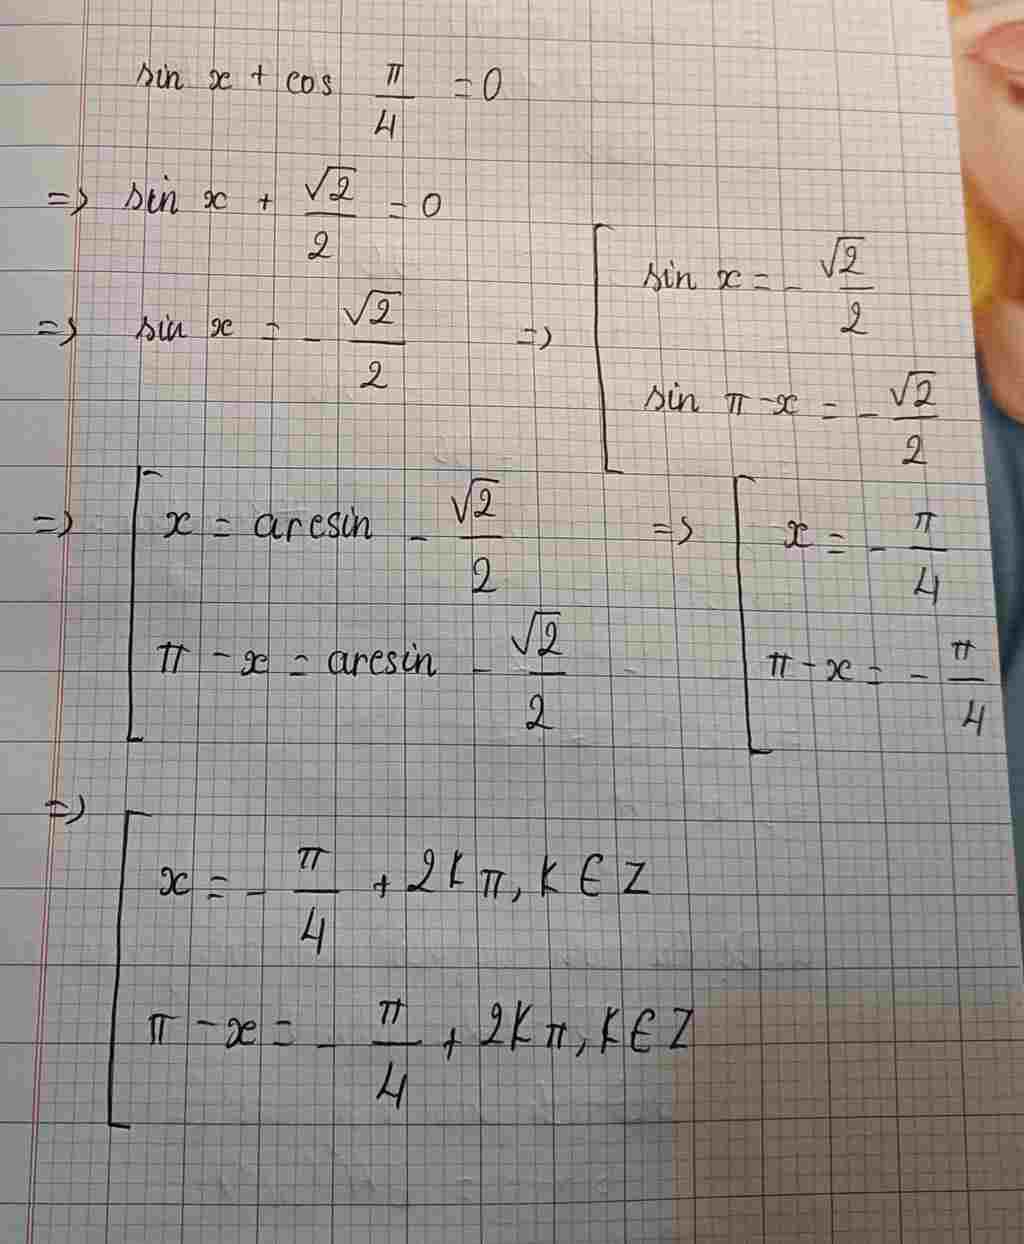 sin x + cos π/4 = 0
=> sin x + √2/2 = 0
=> sin x = - √2/2 => [ sin x = - √2/2
sin π - x = - √2/2
=> [ x = arcsin - √2/2 => [ x = - π/4
π - x = arcsin - √2/2 π - x = - π/4
=> [ x = - π/4 + 2kπ, k ∈ Z
π - x = - π/4 + 2kπ, k ∈ Z